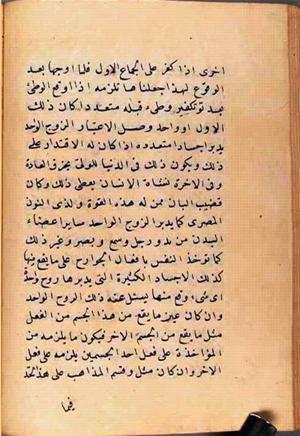 اخرى اذا كفر على الجماع الاول فلما اوجبها بعد
الوقوع لهذا جعلناها تلزمه اذا اوقع الوطئ
بعد تكفير وطىء قبله متعددا كان ذلك
الاول او واحد وصل الاعتبار الزوج الواحد
يدبر اجسادا متعدده اذا كان له الاقتدار على
ذلك ويكون ذلك فى الدنيا للولى بخرق العادة
وفى الاخرة نشاة الانسان يعطى ذلك وكان
قضيب البان ممن له هذه القوة ولذى النون
المصرى كما يدبر الروح الواحد ساير اعضاء
البدن من يد ورجل وسمع وبصر وغير ذلك
كما تواخذ النفس بافعال الجوارح على ما يقع منها
كذلك الاجساد الكثيرة التى يدبرها روح واحد
اى شىء وقع منها يسئل عنه ذلك الروح الواحد
وان كان عين ما يقع من هذا الجسم من الفعل
مثل ما يقع من الجسم الاخر فيكون ما يلزمه من
المؤاخذة على فعل احد الجسمين يلزمه على فعل
الاخر وان كان مثله وقسم المذاهب على هذا الحد
فيما